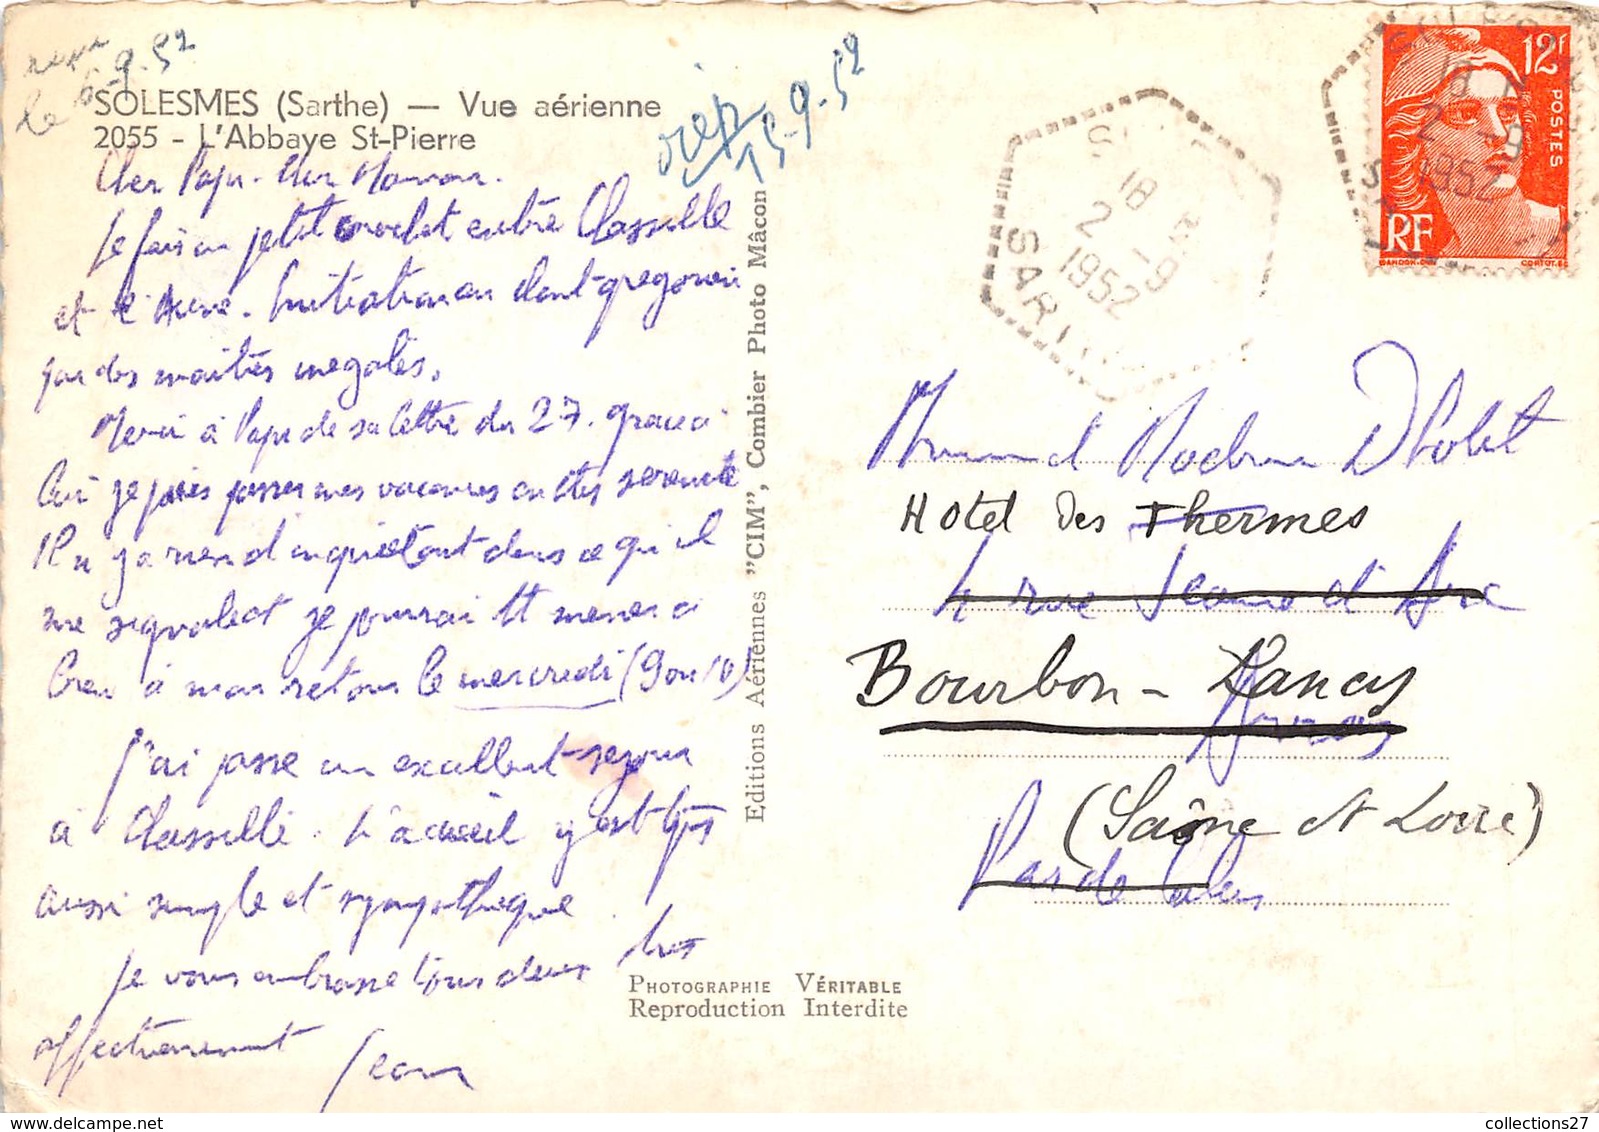 le 6-9-52
SOLESMES (Sarthe) — Vue aérienne
2055 - L'Abbaye St-Pierre
rép 15-9-52
Cher Papa - Cher Maman.
Je fais un petit crochet entre Classelle
et le Mans. Initiation au chant grégorien
par des maîtres inégalés.
Merci à Papa de sa lettre du 27. grace à
lui je puis passer mes vacances en tte sérénité
Il n'y a rien d'inquiétant dans ce qu'il
me signale et je pourrai tt mener à
bien à mon retour le mercredi (9 ou 10)
J'ai passé un excellent séjour
à Classelle. L'accueil y est tjrs
aussi simple et sympathique.
Je vous embrasse tous deux très
affectueusement Jean
Editions Aériennes "CIM", Combier Photo Mâcon
PHOTOGRAPHIE VÉRITABLE
Reproduction Interdite
18 H
2 -9
1952
SAR
12F
POSTES
RF
GANDON-DEL
CORTOT.SC
18 H
2 -9
1952
Hotel Des Thermes
4 rue Jeanne d'Arc
Bourbon-Lancy
Arras
(Saône et Loire)
Pas de Calais
collections27